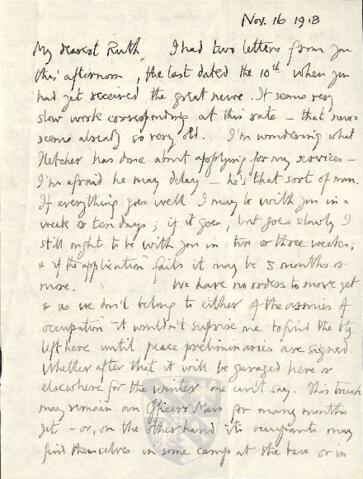 Nov. 16 1918
My dearest Ruth, I had two letters from you
this afternoon, the last dated the 10th when you
had yet received the great news. It seems very
slow work corresponding at this rate – that news
seems already so very old. I'm wondering what
Fletcher has done about applying for my services –
I'm afraid he may delay – he's that sort of man.
If everything goes well I may be with you in a
week or ten days; if it goes, but goes slowly I
still ought to be with you in two or three weeks;
& if the application fails it may be 3 months or
more. We have no orders to move yet
& as we don't belong to either of the armies of
occupation it wouldn't surprise me to find the bty.
left here until peace preliminaries are signed
whether after that it will be garaged here or
elsewhere for the winter one can't say. This
may remain an Officers Mess for many months
yet – or, on the other hand its occupants may
find themselves in some camp at the base or in